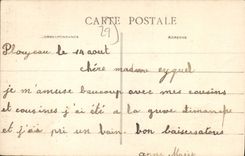 CARTE POSTALE
29
CORRESPONDANCE
ADRESSE
le 14 aout
chère madame
je m'amuse beaucoup avec mes cousins
et cousines j'ai été a la greve dimanche
et j'ai pri un bain bon baisers a tous
anne Marie